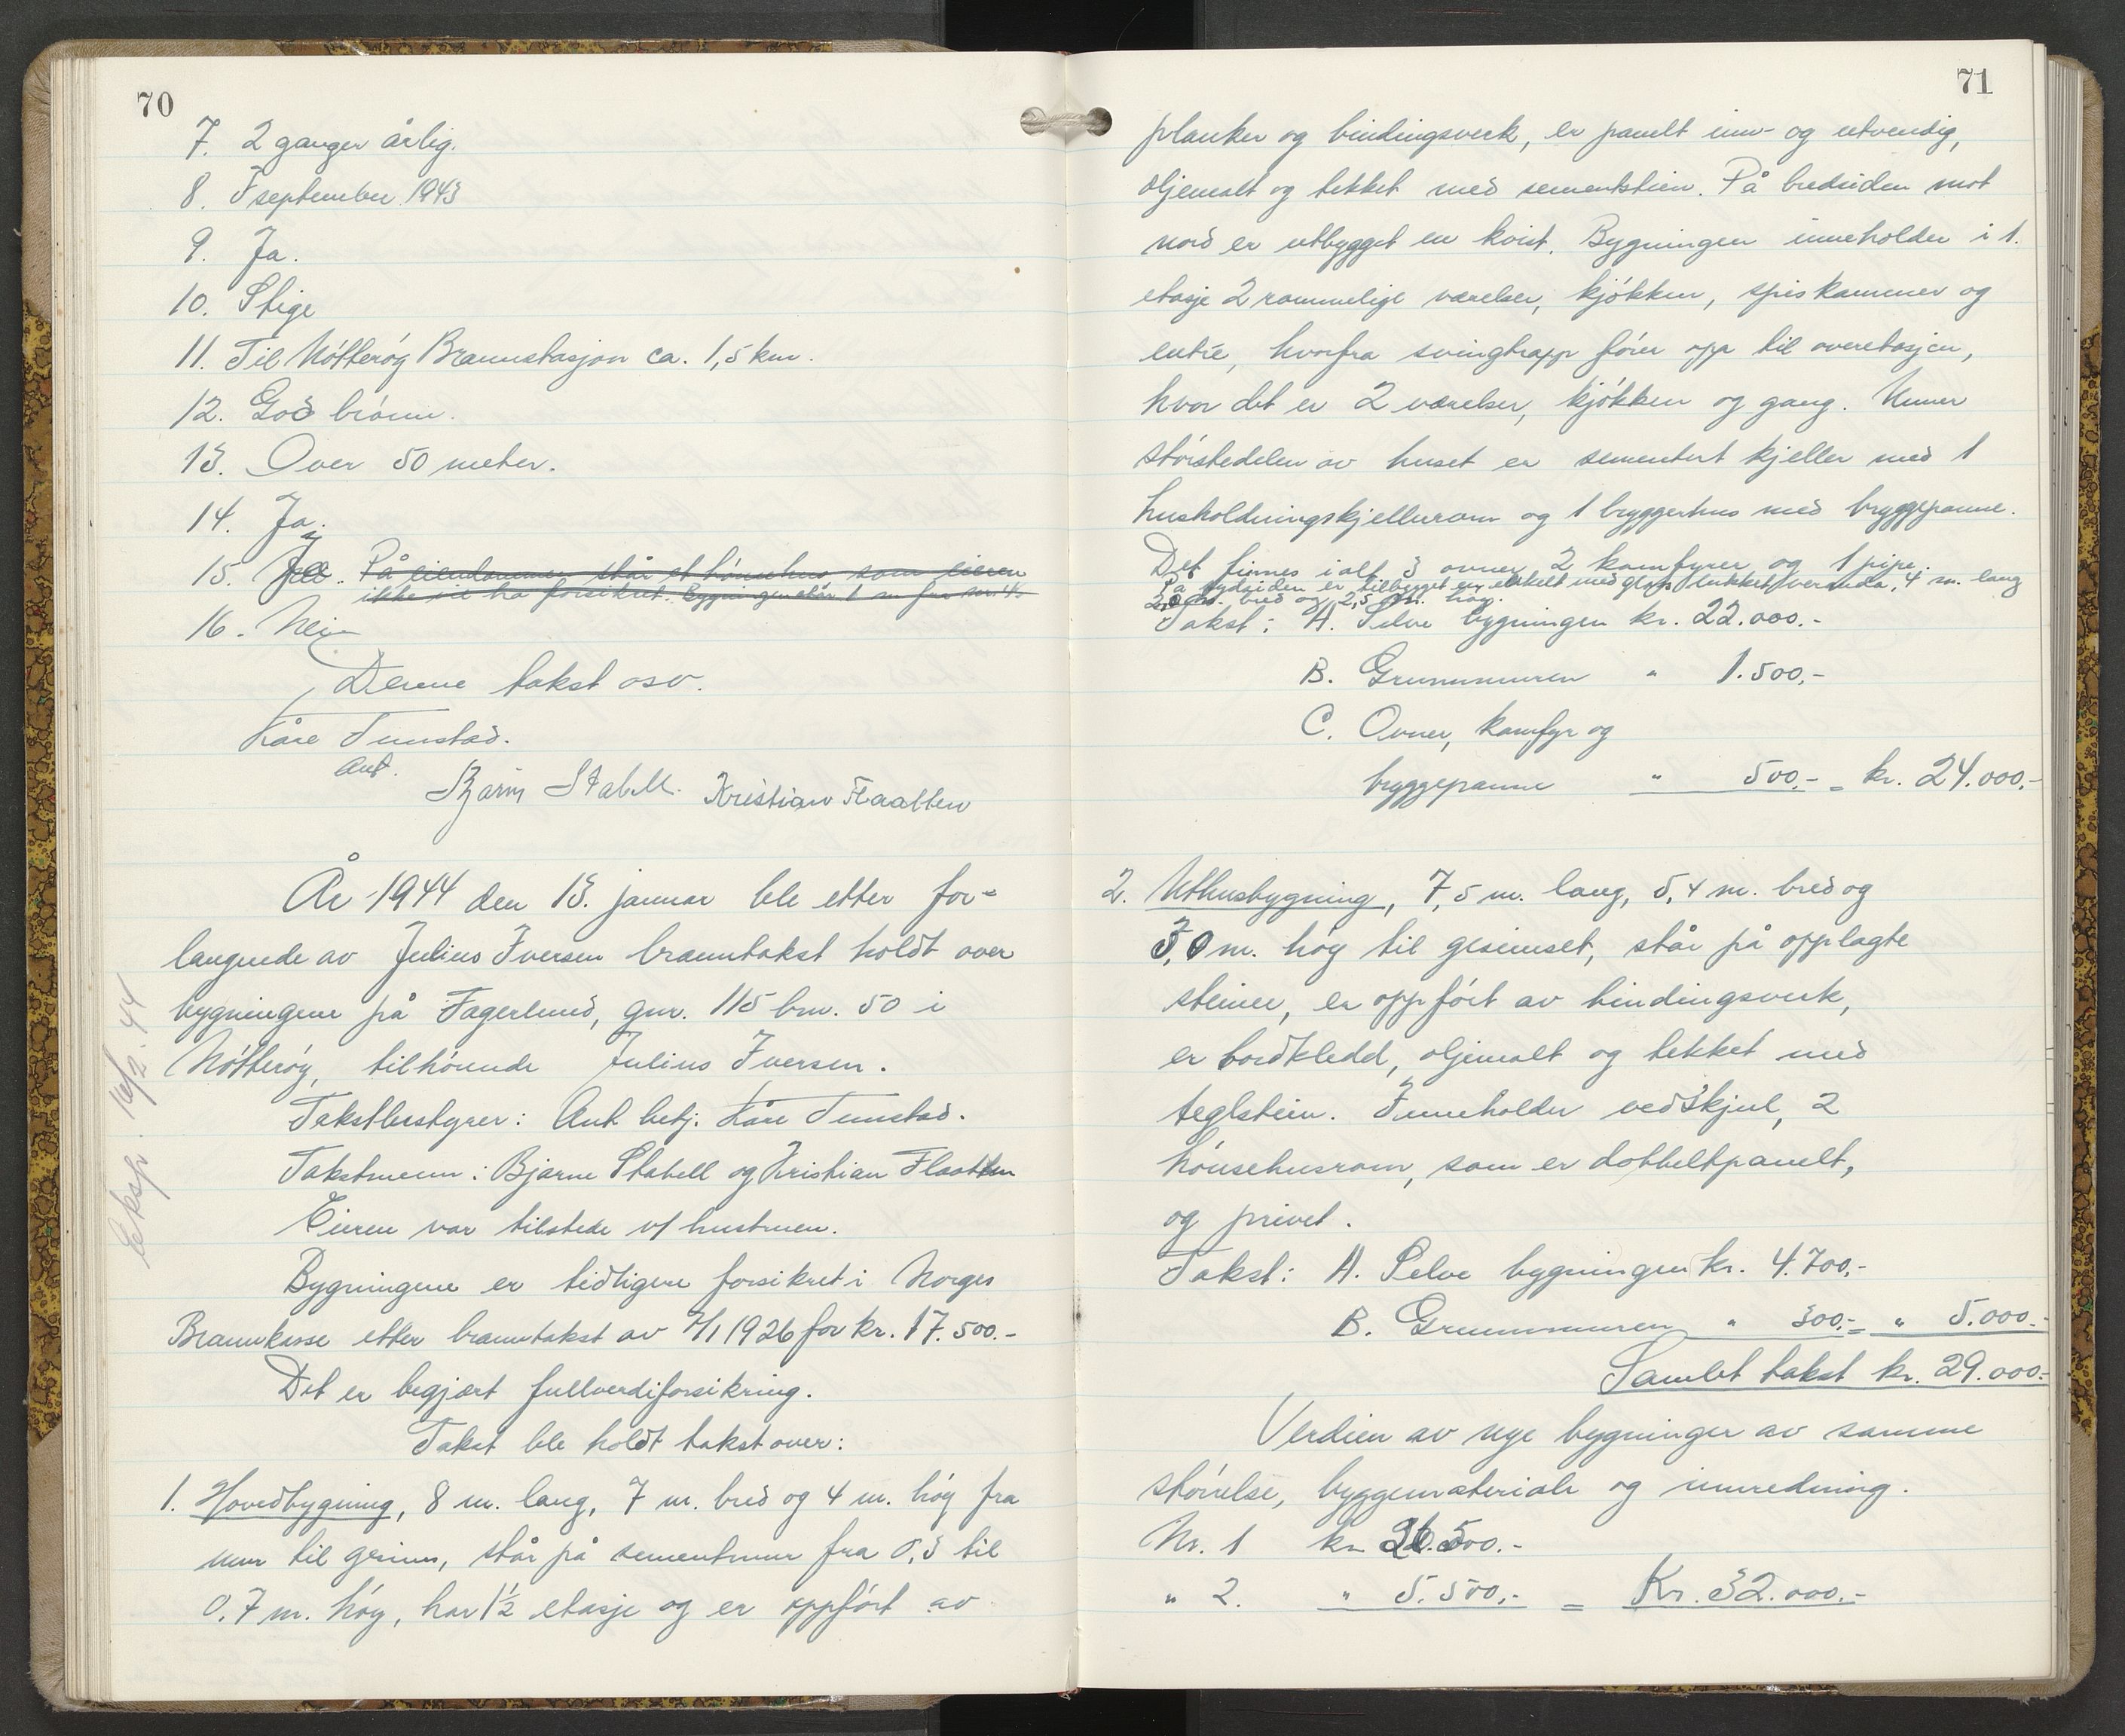 70
7. 2 ganger årlig.
8. I september 1943
9. Ja.
10. Stige
11. Til Nøtterøy Brannstasjon ca. 1,5 km.
12. God brønn.
13. Over 50 meter.
14. Ja.
15. Ja. På eiendommen står et hønsehus som eieren
ikke vil ha forsikret. Bygningen står 1 m fra nr. 4.
16. Nei
Denne takst osv.
Kåre Tunstad.
Ant.
Bjarne Stabell. Kristian Flaatten
År 1944 den 13. januar ble etter for-
langende av Julius Iversen branntakst holdt over
bygningene på Fagerlund, gnr. 115 bnr. 50 i
Nøtterøy, tilhørende Julius Iversen.
Takstbestyrer: Ant. betj. Kåre Tunstad.
Takstmenn: Bjarne Stabell og Kristian Flaatten
Eieren var tilstede v/ hustruen.
Bygningene er tidligere forsikret i Norges
Brannkasse etter branntakst av 7/1 1926 for kr. 17.500.-
Det er begjært fullverdiforsikring.
Takst ble holdt takst over:
1. Hovedbygning, 8 m. lang, 7 m. bred og 4 m. høy fra
mur til gesims, står på sementmur fra 0,3 til
0,7 m. høy, har 1½ etasje og er oppført av
Eksp. 16/2. 44
71
planker og bindingsverk, er panelt inn- og utvendig,
oljemalt og tekket med sementstein. På bredsiden mot
nord er utbygget en kvist. Bygningen inneholder i 1.
etasje 2 rommelige værelser, kjøkken, spiskammer og
entré, hvorfra svingtrapp fører opp til overetasjen,
hvor det er 2 værelser, kjøkken og gang. Unner
størstedelen av huset er sementert kjeller med 1
husholdningskjellerrom og 1 bryggerhus med bryggepanne.
Det finnes ialt 3 ovner, 2 komfyrer og 1 pipe.
På sydsiden er tilbygget en enkelt med glass lukket veranda, 4 m. lang
2,0 m. bred og 2,5 m. høy.
Takst: A. Selve bygningen kr. 22.000.-
B. Grunnmuren " 1.500,-
C. Ovner, komfyr og
bryggepanne " 500,- = kr. 24.000,-
2. Uthusbygning, 7,5 m. lang, 5,4 m. bred og
3,0 m. høy til gesimset, står på opplagte
steiner, er oppført av bindingsverk,
er bordkledd, oljemalt og tekket med
teglstein. Inneholder vedskjul, 2
hønsehusrom, som er dobbeltpanelt,
og privet.
Takst: A. Selve bygningen kr. 4.700,-
B. Grunnmuren " 300,- = " 5.000.-
Samlet takst kr. 29.000.-
Verdien av nye bygninger av samme
størrelse, byggemateriale og innredning.
Nr. 1 kr. 26.500.-
" 2. " 5.500,- = Kr. 32.000.-